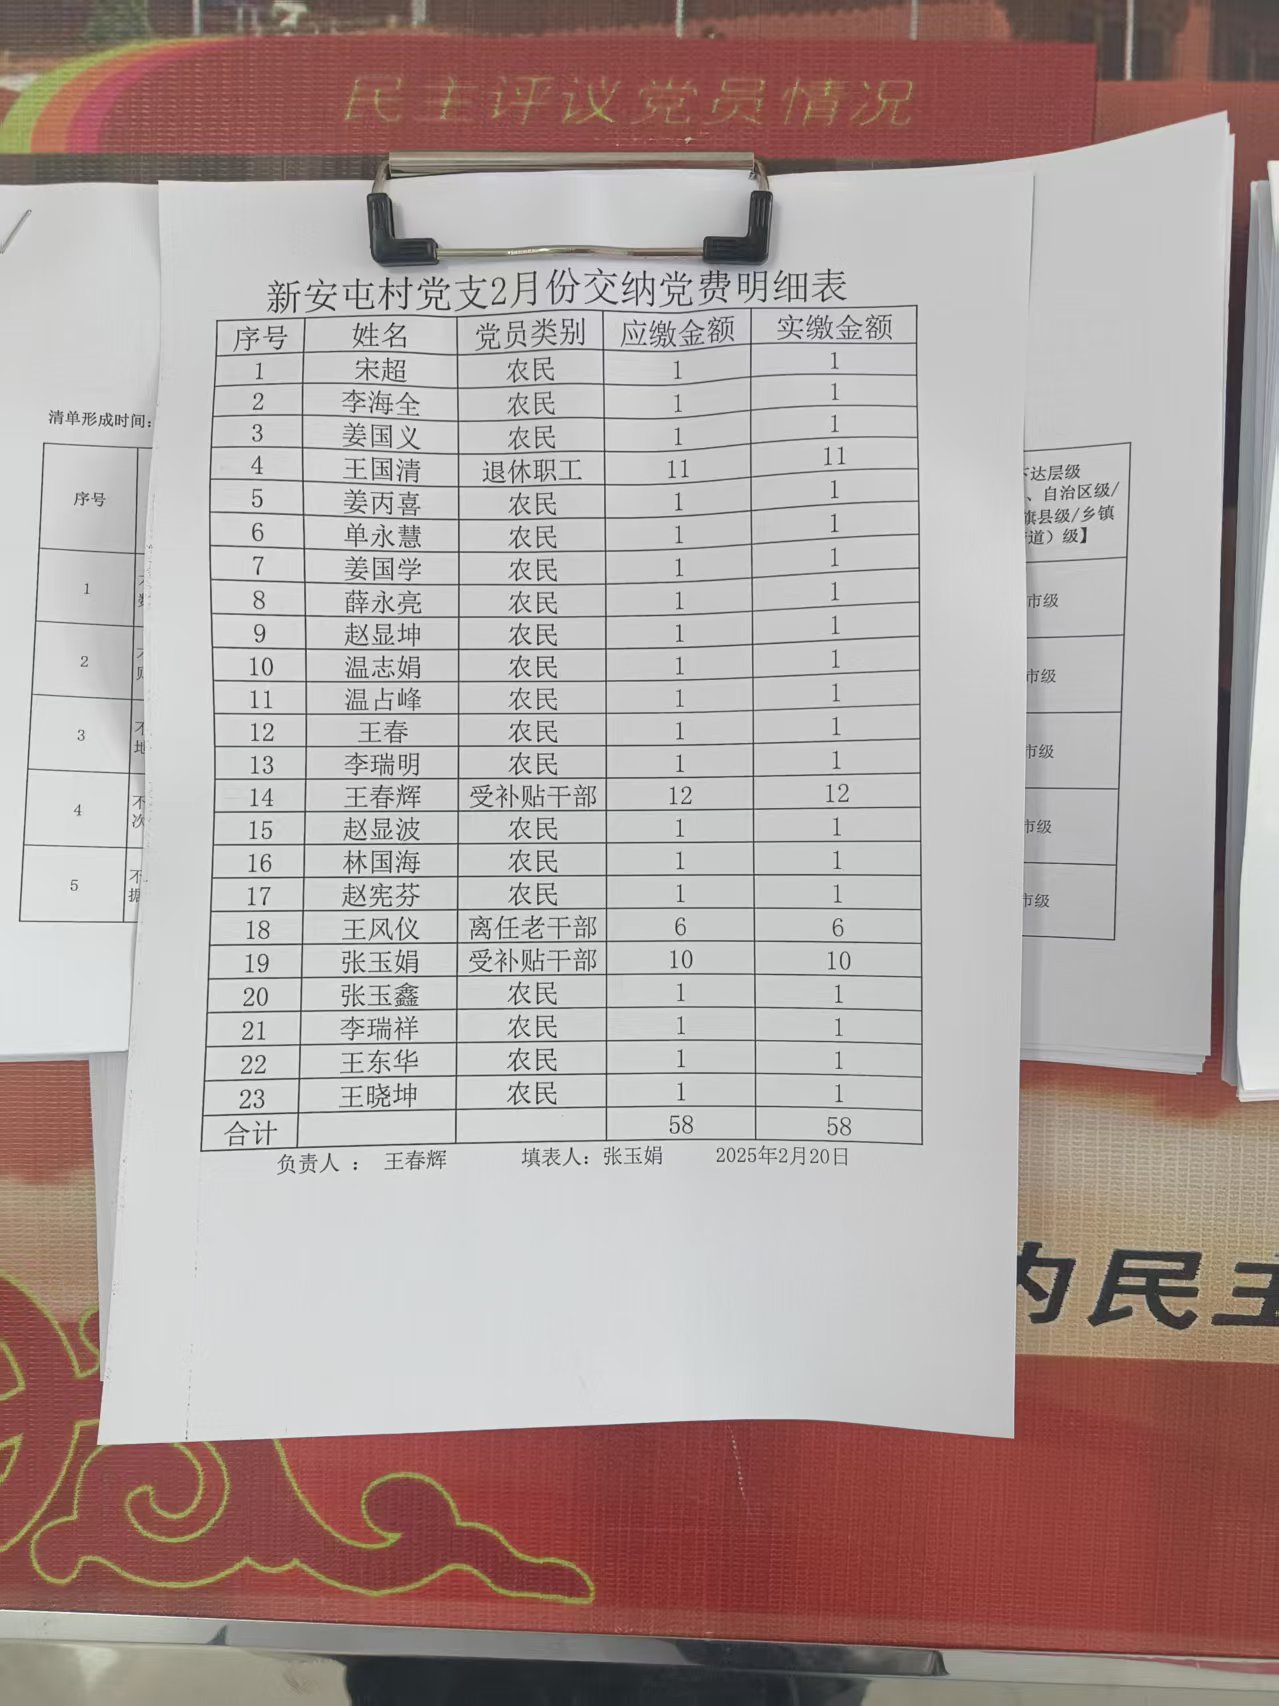 民主评议党员情况
新安屯村党支2月份交纳党费明细表
序号 姓名 党员类别 应缴金额 实缴金额
1 宋超 农民 1 1
2 李海全 农民 1 1
3 姜国义 农民 1 1
4 王国清 退休职工 11 11
5 姜丙喜 农民 1 1
6 单永慧 农民 1 1
7 姜国学 农民 1 1
8 薛永亮 农民 1 1
9 赵显坤 农民 1 1
10 温志娟 农民 1 1
11 温占峰 农民 1 1
12 王春 农民 1 1
13 李瑞明 农民 1 1
14 王春辉 受补贴干部 12 12
15 赵显波 农民 1 1
16 林国海 农民 1 1
17 赵宪芬 农民 1 1
18 王风仪 离任老干部 6 6
19 张玉娟 受补贴干部 10 10
20 张玉鑫 农民 1 1
21 李瑞祥 农民 1 1
22 王东华 农民 1 1
23 王晓坤 农民 1 1
合计 58 58
负责人 ： 王春辉 填表人：张玉娟 2025年2月20日
清单形成时间：
序号
1
2
3
4
5
下达层级
、自治区级/
旗县级/乡镇
道）级】
市级
市级
市级
市级
市级
内民主